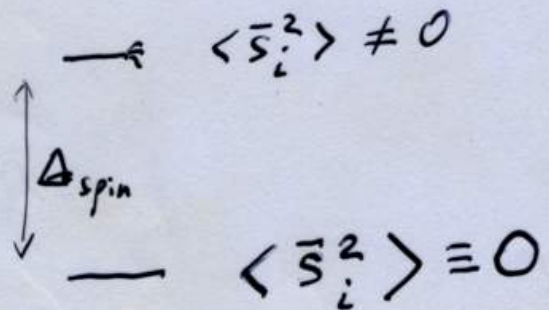 < s̄ᵢ² > ≠ 0
Δ spin
< s̄ᵢ² > ≡ 0